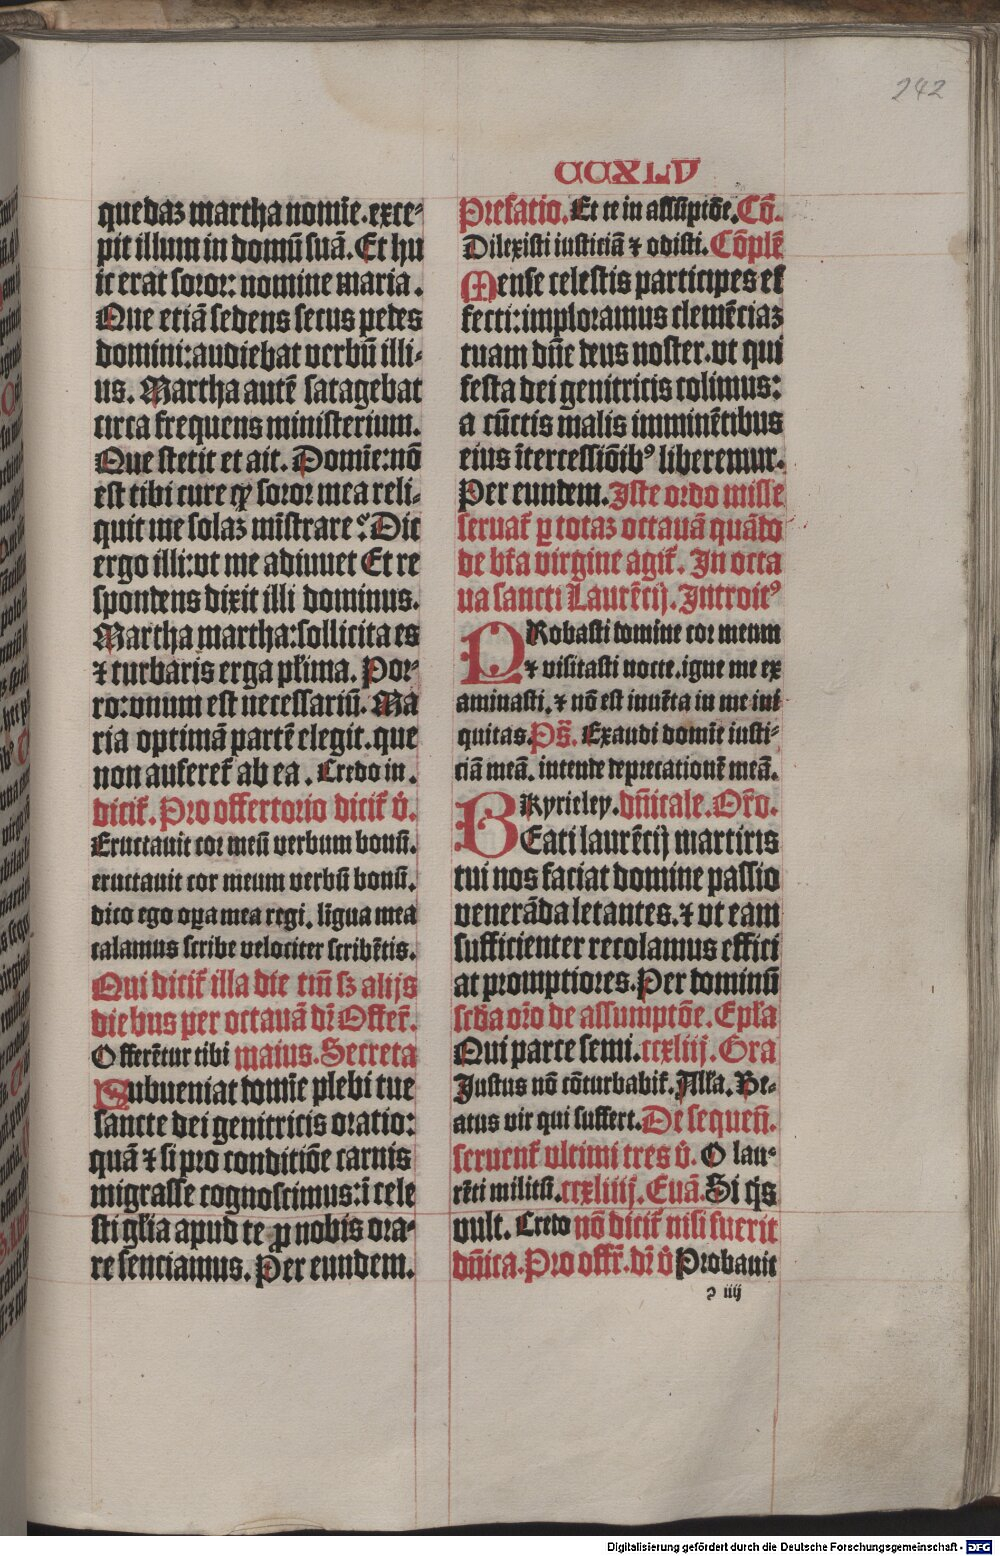 242
CCXLV
quedaz martha nomīe. exce-
pit illum in domū suā. Et hu
ic erat soror: nomine maria.
Que etiā sedens secus pedes
domini: audiebat verbū illi-
us. Martha autē satagebat
circa frequens ministerium.
Que stetit et ait. Domīe: nō
est tibi cure ꝙ soror mea reli-
quit me solaz mīstrare? Dic
ergo illi: vt me adiuuet Et re
spondens dixit illi dominus.
Martha martha: sollicita es
⁊ turbaris erga pl̄ima. Por-
ro: vnum est necessariū. Ma
ria optimā partē elegit. que
non auferet᷑ ab ea. Credo in.
dicit᷑. Pro offertorio dicit᷑ v̄.
Eructauit cor meū verbum bonū.
eructauit cor meum verbū bonū.
dico ego oꝑa mea regi. līgua mea
calamus scribe velociter scribētis.
Qui dicit᷑ illa die tm̄ sꝫ alijs
diebus per octauā dr̄ Offer̄.
Offerētur tibi maius. Secreta
Subueniat domīe plebi tue
sancte dei genitricis oratio:
quā ⁊ si pro conditiōe carnis
migrasse cognoscimus: ī cele
sti gl̄ia apud te ꝓ nobis ora-
re senciamus. Per eundem.
Prefatio. Et te in assūptōe. Cō.
Dilexisti iusticiā ⁊ odisti. Cōplē
Mense celestis participes ef
fecti: imploramus clemēciaz
tuam dn̄e deus noster. vt qui
festa dei genitricis colimus:
a cūctis malis imminētibus
eius ītercessiōibꝰ liberemur.
Per eundem. Iste ordo misse
seruat᷑ ꝑ totaz octauā quādo
de bt̄a virgine agit᷑. In octa
ua sancti Laurēcij. Introitꝰ
PRobasti domine cor meum
⁊ visitasti nocte. igne me ex
aminasti. ⁊ nō est inuēta in me ini
quitas. Ps̄. Exaudi domīe iusti-
ciā meā. intende deprecationē meā.
Kyrieley. dn̄icale. Or̄o.
BEati laurēcij martiris
tui nos faciat domine passio
venerāda letantes. ⁊ vt eam
sufficienter recolamus effici
at promptiores. Per dominū
scd̄a or̄o de assumptōe. Epl̄a
Qui parce semi. ccxliij. Gra
Justus nō cōturbabit᷑. All̄a. Be-
atus vir qui suffert. De sequen̄.
seruent᷑ vltimi tres v̄. O lau-
rēti militū. ccxliiij. Euā. Si q̄s
vult. Credo nō dicit᷑ nisi fuerit
dn̄ica. Pro offr̄. dr̄ v̄ Probauit
ꝛ iiij
Digitalisierung gefördert durch die Deutsche Forschungsgemeinschaft - DFG